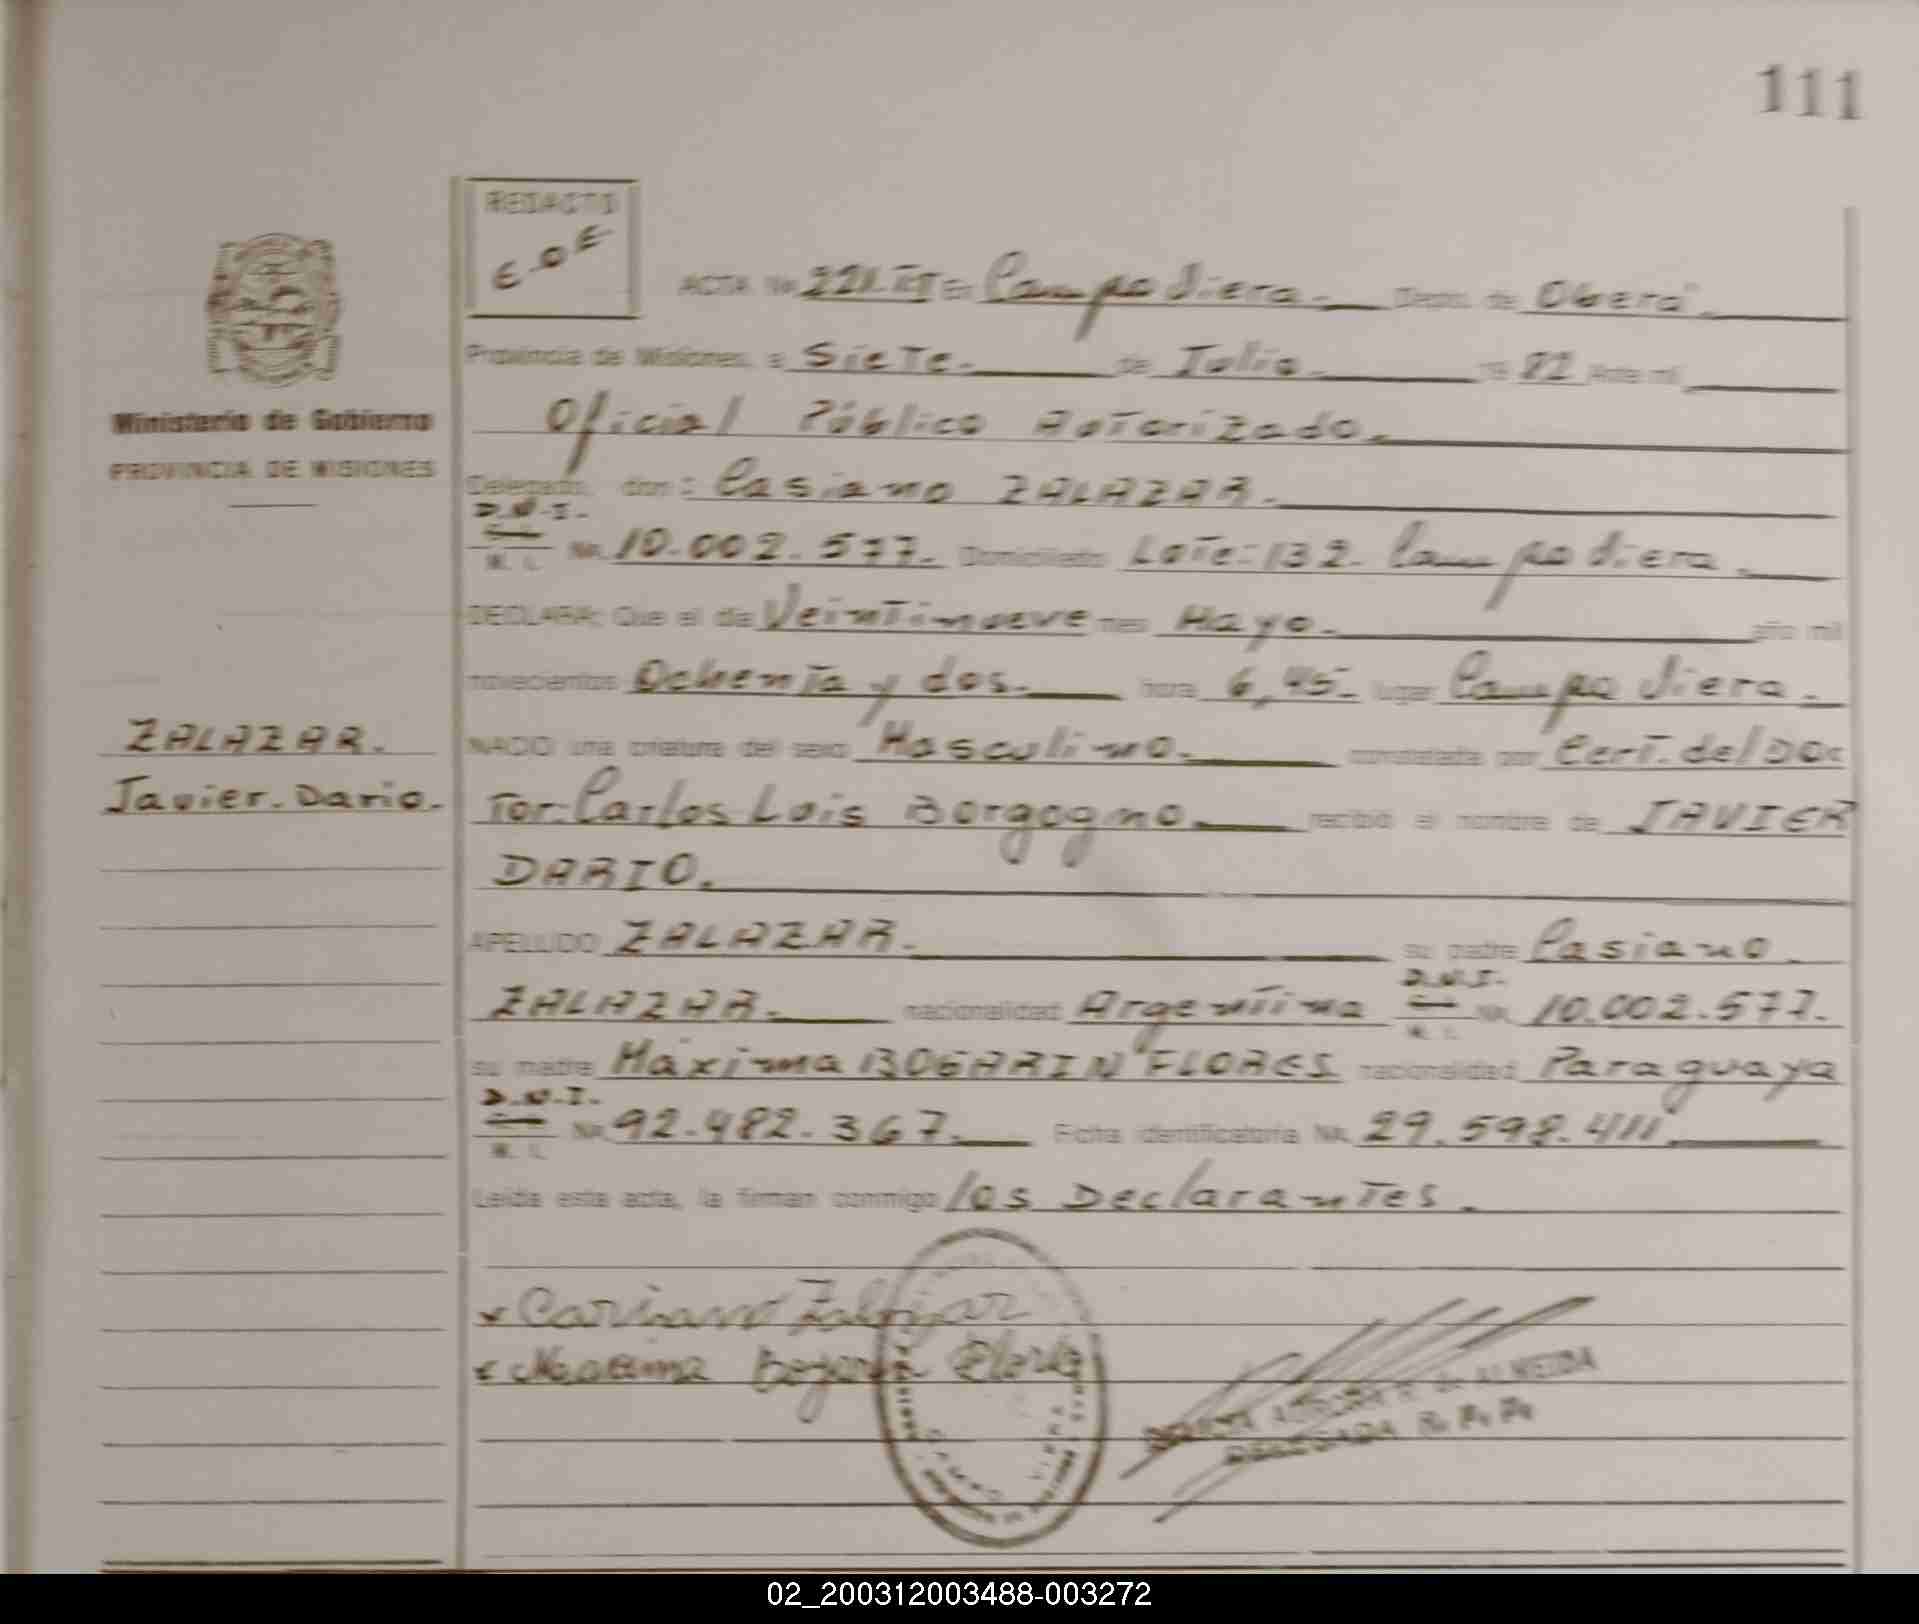 111
REDACTO
E.D.E
ACTA Nº 221. TºI En Campo Viera. Depto. de Oberá.
Provincia de Misiones, a Siete. de Julio. 19 82 Ante mí
Oficial Público Autorizado.
Ministerio de Gobierno
PROVINCIA DE MISIONES
Delegado, don: Casiano ZALAZAR.
D.N.I.
M. I. Nº 10.002.577. Domiciliado Lote: 132. Campo Viera.
DECLARA: Que el día Veintinueve mes Mayo. año mil
novecientos Ochenta y dos. hora 6,45. lugar Campo Viera.
ZALAZAR.
Javier. Dario.
NACIO una criatura del sexo Masculino. constatada por Cert. del Doc
tor: Carlos Luis Borgogno. recibió el nombre de JAVIER
DARIO.
APELLIDO ZALAZAR. su padre Casiano.
ZALAZAR. nacionalidad Argentina D.N.I. M. I. Nº 10.002.577.
su madre Máxima BOGARIN FLORES nacionalidad Paraguaya
D.N.I.
M. I. Nº 92.482.367. Ficha identificatoria Nº 29.598.411
Leída esta acta, la firman conmigo los Declarantes.
Zalazar
Maxima Bogarin Flores
CAMPO VIERA
de ALMEIDA
DELEGADA R. P. P.
02_200312003488-003272